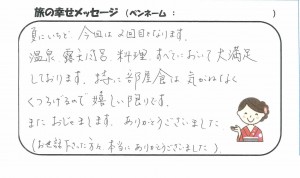 旅の幸せメッセージ （ペンネーム：　）
夏にいちど 今回は2回目となります。
温泉 露天風呂、料理 すべてにおいて大満足
しております。特に部屋食は気がねなく
くつろげるので嬉しい限りです。
またおじゃまします。ありがとうございました
（お世話下さった方々 本当にありがとうございました）